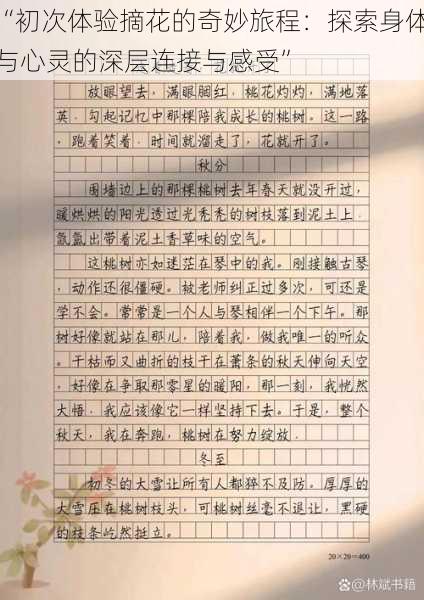 “初次体验摘花的奇妙旅程：探索身体
与心灵的深层连接与感受”
放眼望去，满眼胭红，桃花灼灼，满地落
英，勾起记忆中那棵陪我成长的桃树。这一路
，跑着笑着，时间就溜走了，花就开了。
秋分
围墙边上的那棵桃树去年春天就没开过，
暖烘烘的阳光透过光秃秃的树枝落到泥土上，
氤氲出带着泥土香草味的空气。
这桃树亦如迷茫在琴中的我。刚接触古琴
，动作还很僵硬。被老师纠正过多次，可还是
学不会。常常是一个人与琴相伴一个下午。那
树好像就站在那儿，陪着我，做我唯一的听众
。干枯而又曲折的枝干在萧条的秋天伸向天空
，好像在争取那零星的暖阳，那一刻，我恍然
大悟，我应该像它一样坚持下去。于是，整个
秋天，我在奔跑，桃树在努力绽放。
冬至
初冬的大雪让所有人都猝不及防。厚厚的
大雪压在桃树枝头，可桃树丝毫不退让，黑硬
的枝条屹然挺立。
20×20=400
林斌书籍